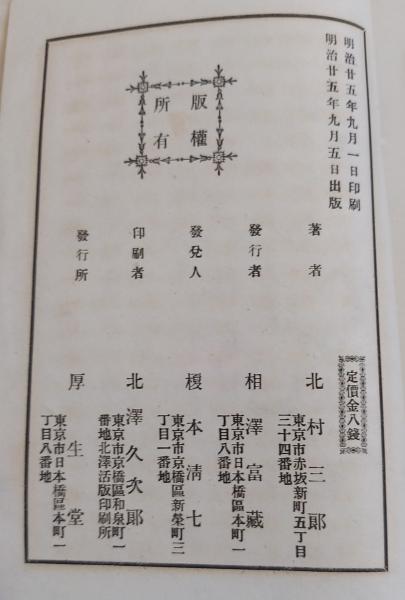 明治廿五年九月一日印刷
明治廿五年九月五日出版
版權
所有
定價金八錢
著者
北村三郎
東京市赤坂新町五丁目
三十四番地
發行者
相澤富藏
東京市日本橋區本町一
丁目八番地
發兌人
榎本淸七
東京市京橋區新榮町三
丁目一番地
印刷者
北澤久次郎
東京市京橋區和泉町一
番地北澤活版印刷所
發行所
厚生堂
東京市日本橋區本町一
丁目八番地